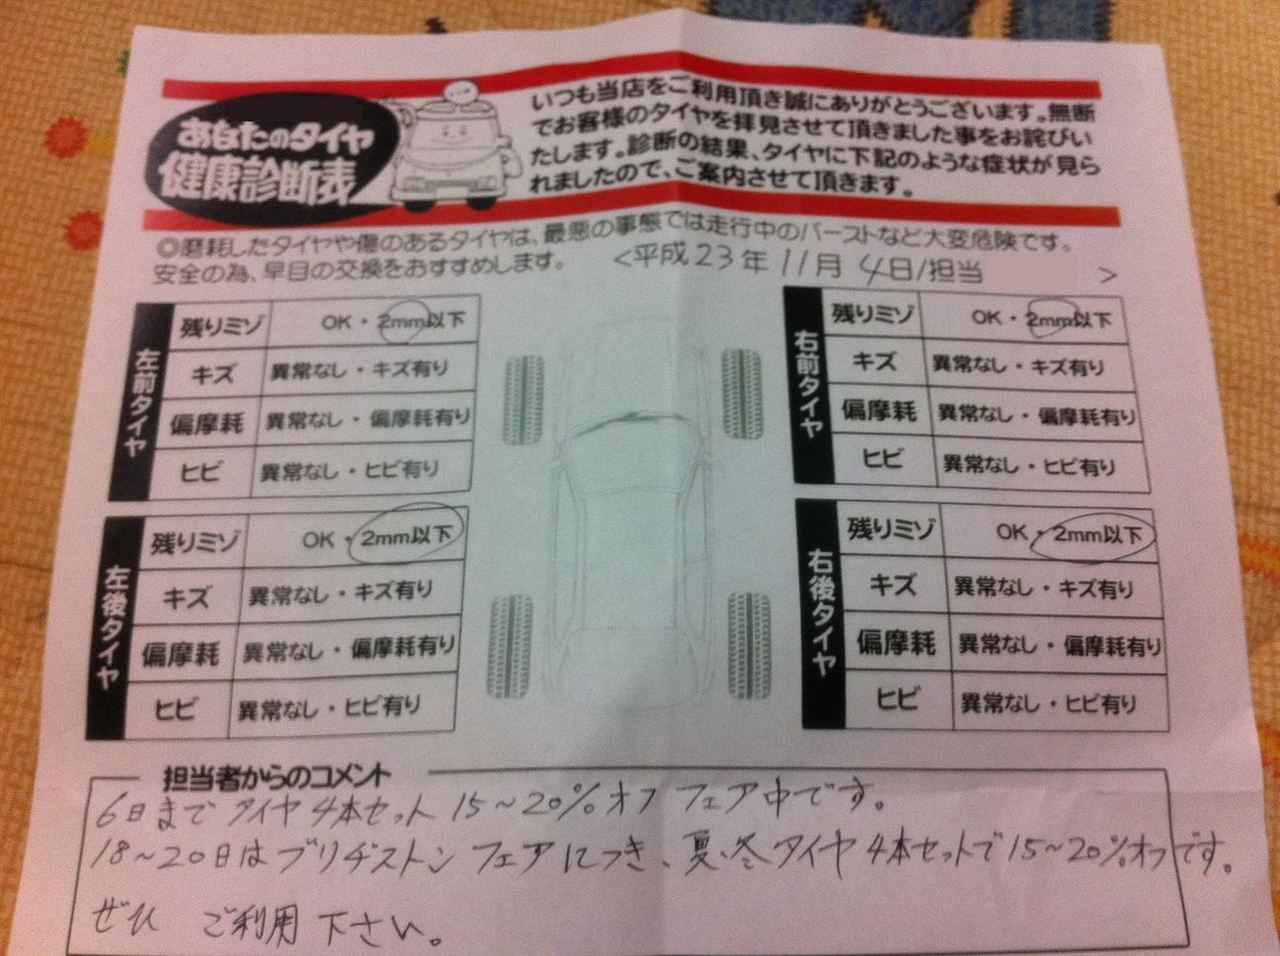 あなたのタイヤ
健康診断表
いつも当店をご利用頂き誠にありがとうございます。無断
でお客様のタイヤを拝見させて頂きました事をお詫びい
たします。診断の結果、タイヤに下記のような症状が見ら
れましたので、ご案内させて頂きます。
◎磨耗したタイヤや傷のあるタイヤは、最悪の事態では走行中のバーストなど大変危険です。
安全の為、早目の交換をおすすめします。
<平成23年 11月 4日/担当 >
左前タイヤ
残りミゾ OK・2mm以下
キズ 異常なし・キズ有り
偏摩耗 異常なし・偏摩耗有り
ヒビ 異常なし・ヒビ有り
右前タイヤ
残りミゾ OK・2mm以下
キズ 異常なし・キズ有り
偏摩耗 異常なし・偏摩耗有り
ヒビ 異常なし・ヒビ有り
左後タイヤ
残りミゾ OK・2mm以下
キズ 異常なし・キズ有り
偏摩耗 異常なし・偏摩耗有り
ヒビ 異常なし・ヒビ有り
右後タイヤ
残りミゾ OK・2mm以下
キズ 異常なし・キズ有り
偏摩耗 異常なし・偏摩耗有り
ヒビ 異常なし・ヒビ有り
担当者からのコメント
6日までタイヤ4本セット15~20%オフ フェア中です。
18~20日はブリヂストンフェアにつき、夏、冬タイヤ4本セットで15~20%オフです。
ぜひ ご利用下さい。